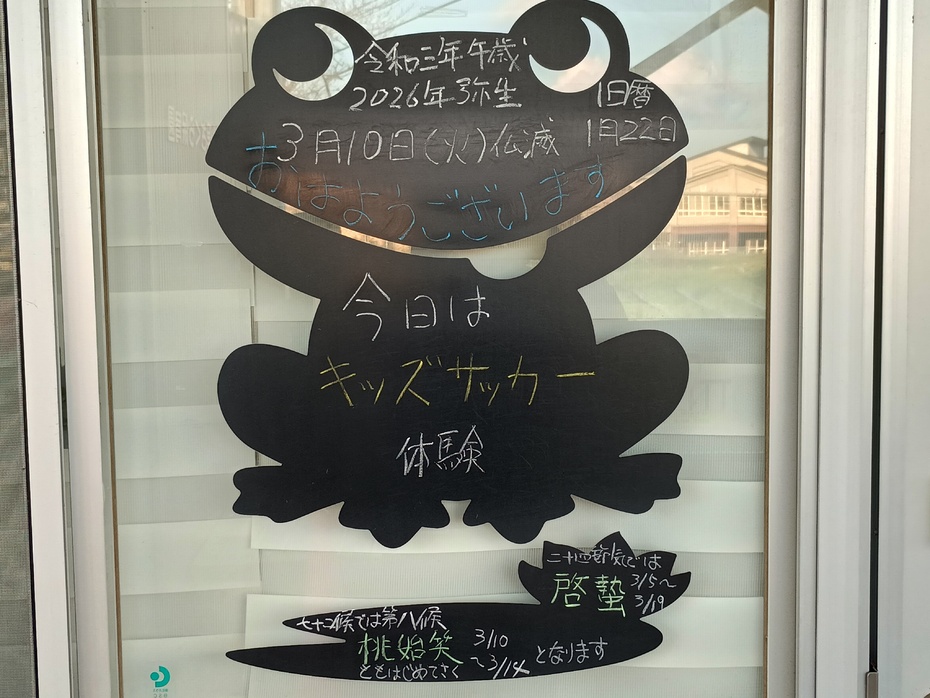 令和三年午歳
2026年弥生
旧暦
1月22日
3月10日(火)仏滅
おはようございます
今日は
キッズサッカー
体験
二十四節気では
啓蟄
3/5〜
3/19
七十二候では第八候
桃始笑
3/10
〜3/14
ともはじめてさく
となります